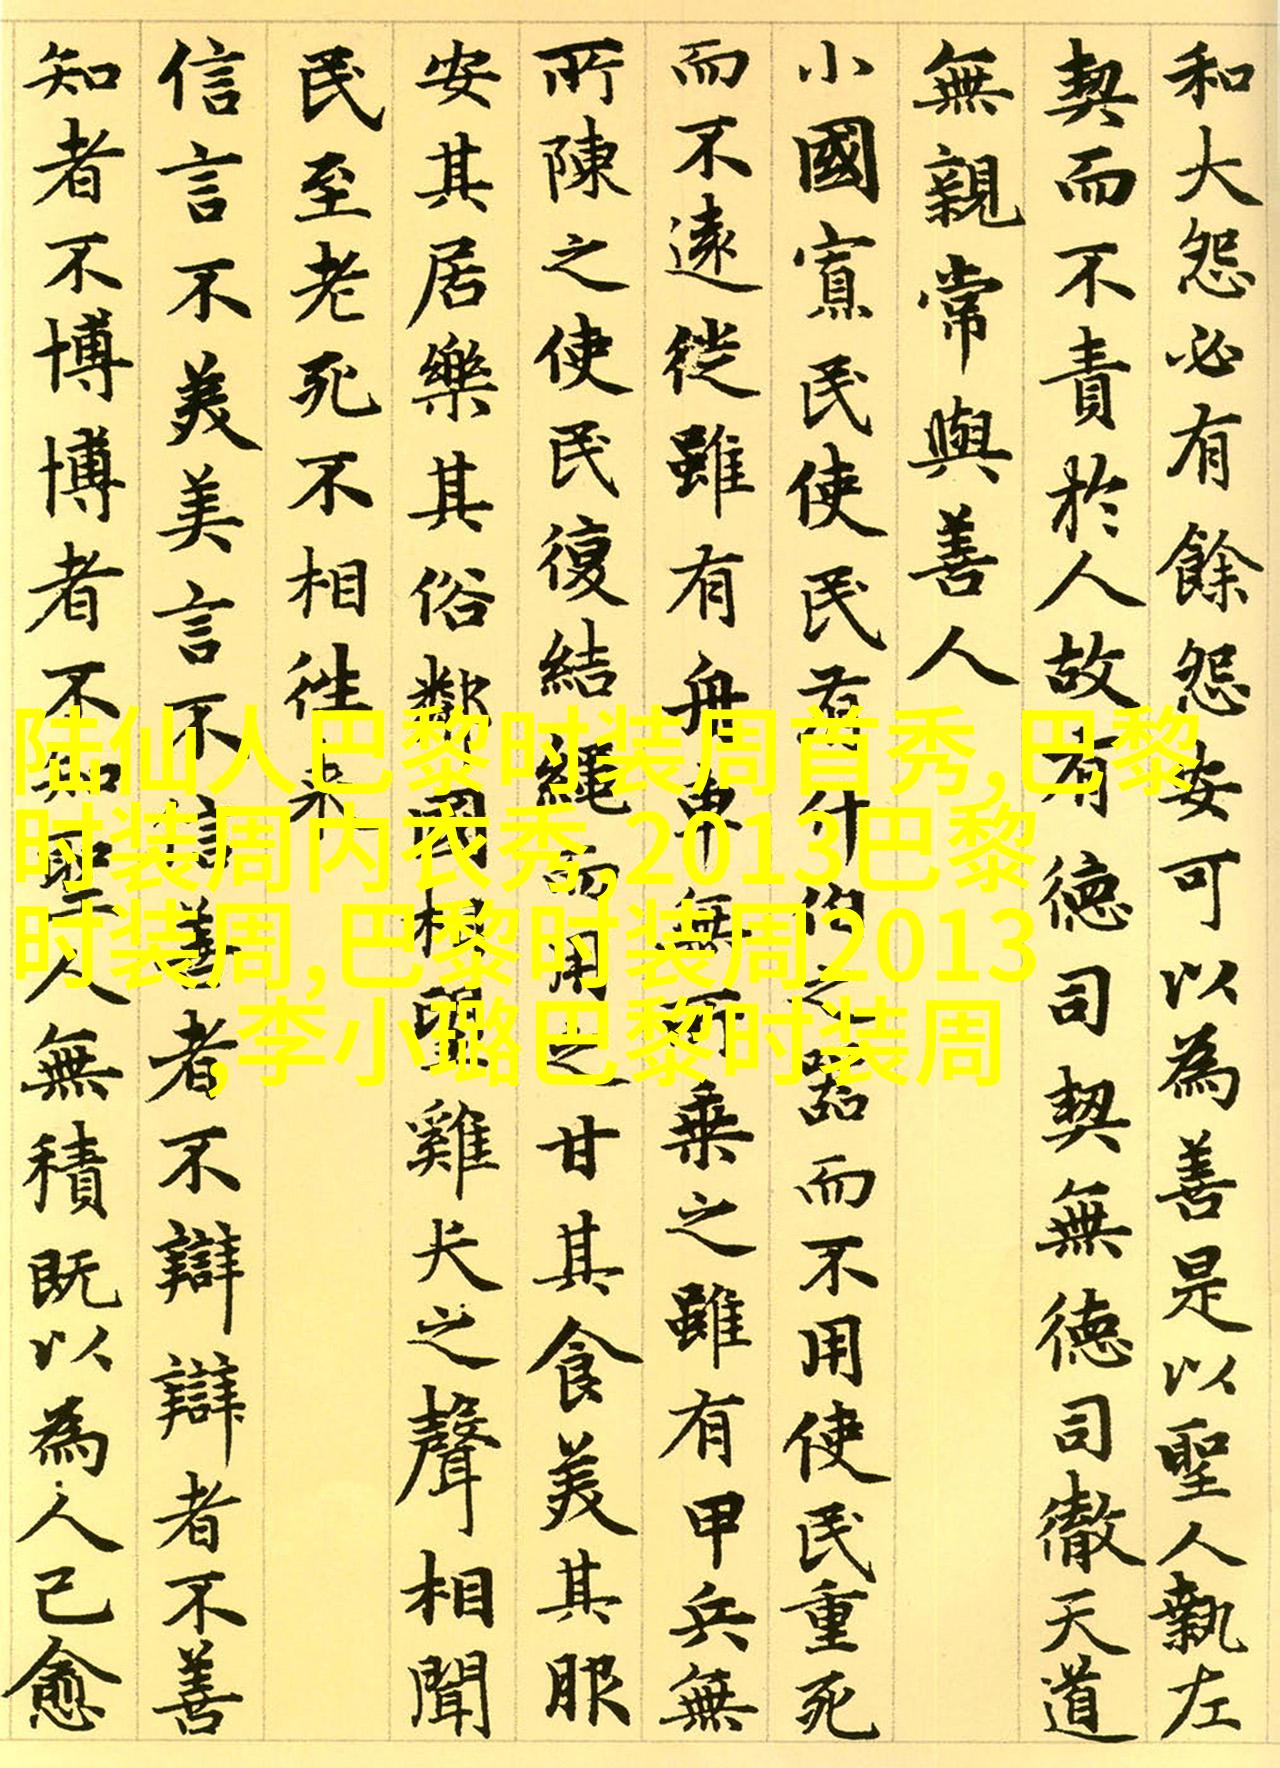 和大怨必有餘怨安可以為善是以聖人執左
契而不責於人故有德司契無德司徹天道
無親常與善人
小國寡民使民有什伯之器而不用使民重死
而不遠徙雖有舟車無所乘之雖有甲兵無
所陳之使民復結繩而用之甘其食美其服
安其居樂其俗鄰國相望雞犬之聲相聞
民至老死不相往来
信言不美美言不信善者不辯辯者不善
知者不博博者不知聖人無積既以為人己愈
陆仙人巴黎时装周首秀,巴黎
时装周内衣秀,2013巴黎
时装周,巴黎时装周2013
,李小璐巴黎时装周